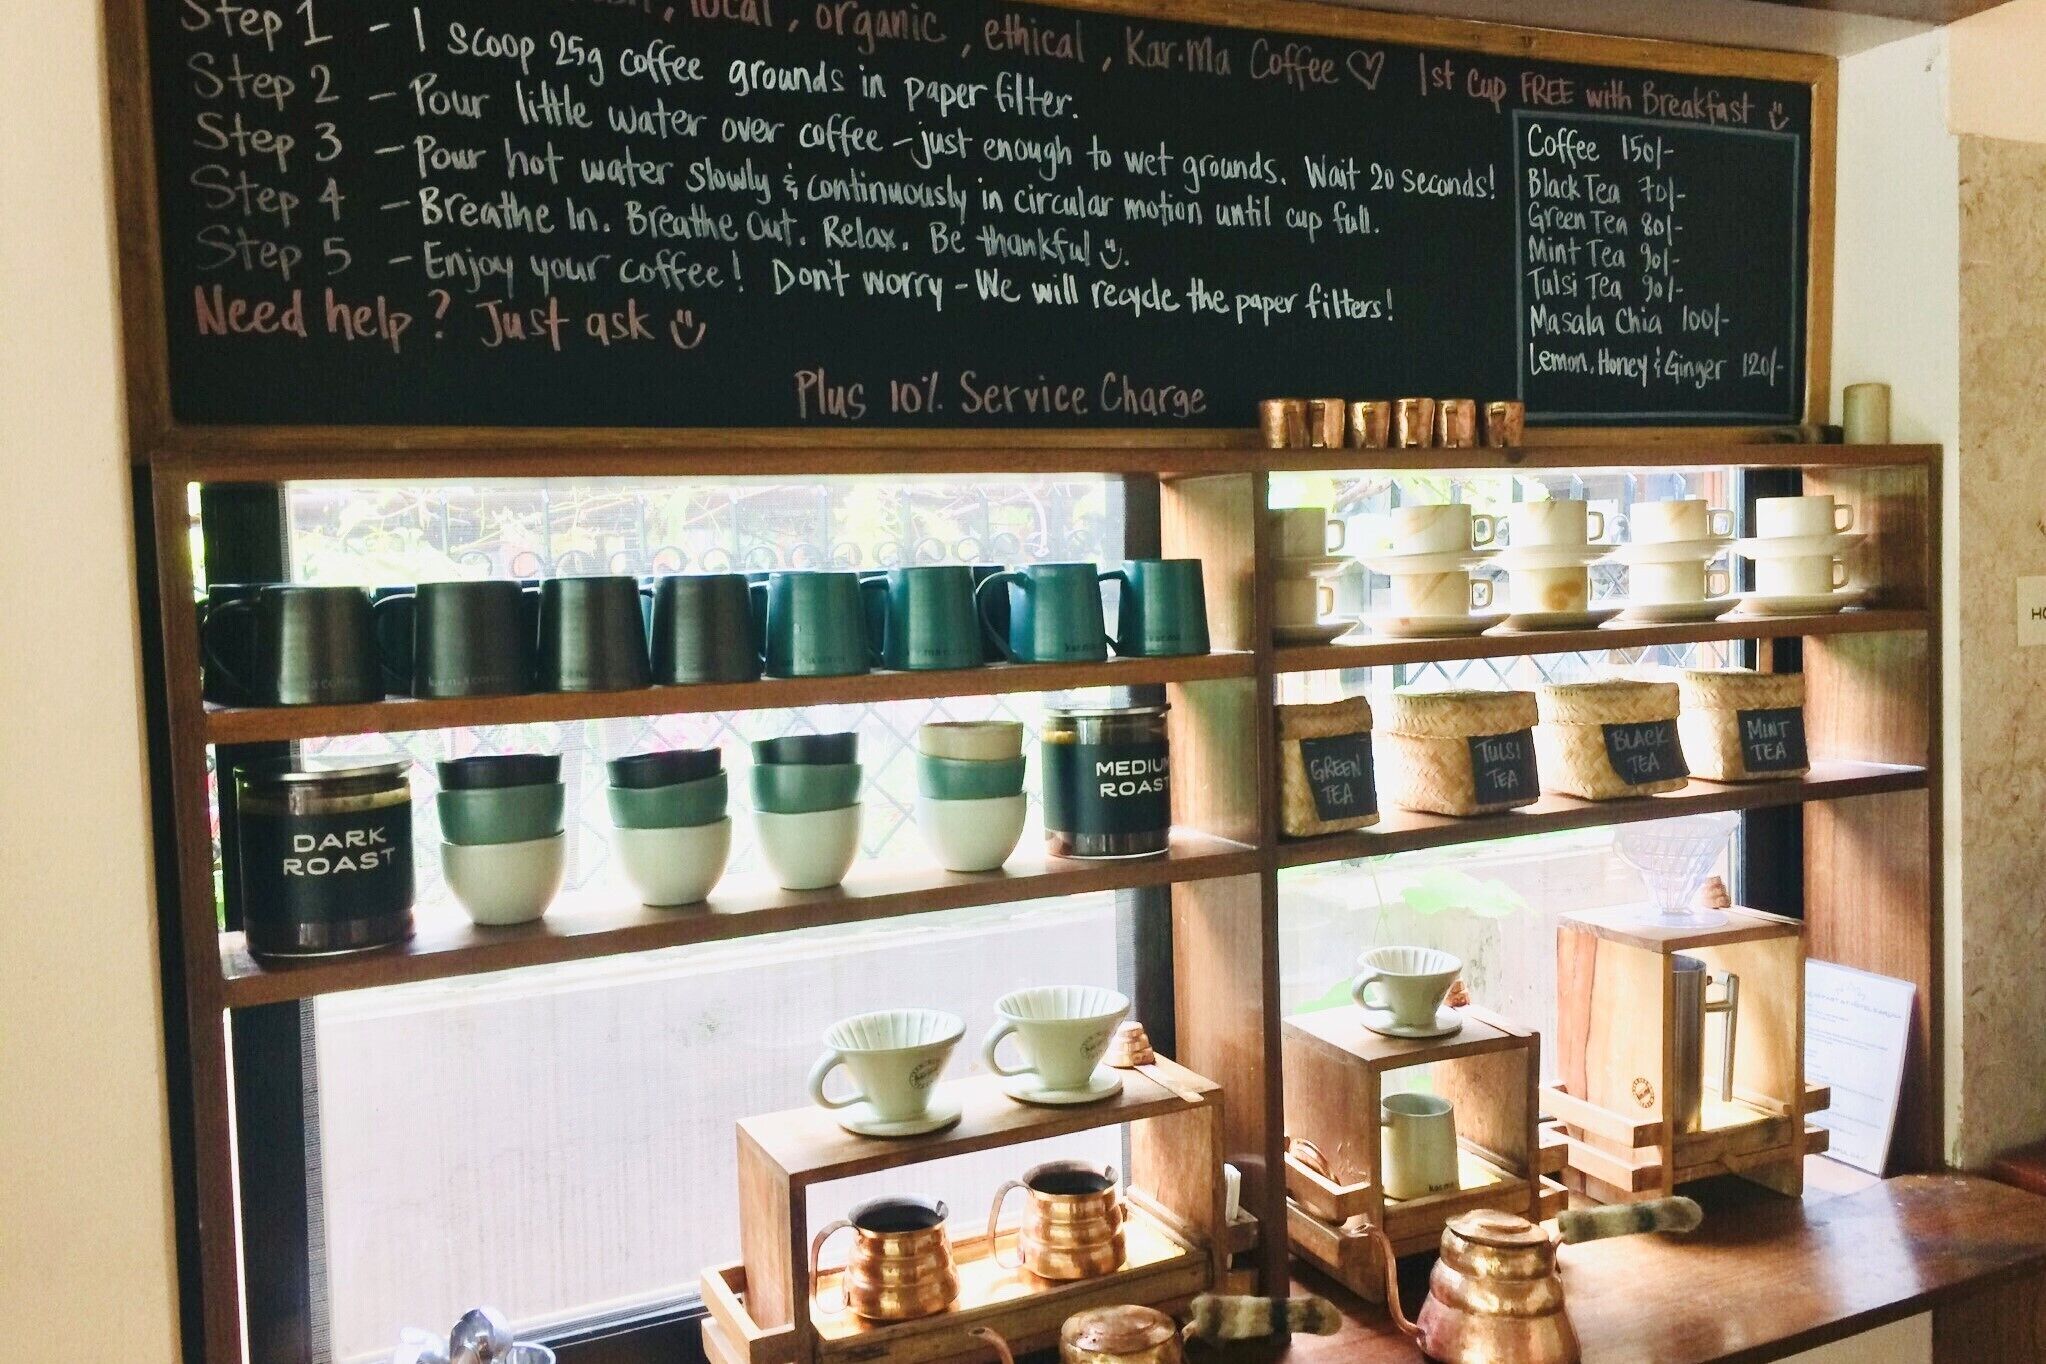 local, organic, ethical, Kar.Ma Coffee ♡ 1st cup FREE with Breakfast
Step 1 - 1 scoop 25g coffee grounds in paper filter.
Step 2 - Pour little water over coffee - just enough to wet grounds. Wait 20 seconds!
Step 3 - Pour hot water slowly & continuously in circular motion until cup full.
Step 4 - Breathe In. Breathe Out. Relax. Be thankful.
Step 5 - Enjoy your coffee! Don't worry - We will recycle the paper filters!
Need help? Just ask
Plus 10% Service Charge
Coffee 150/-
Black Tea 70/-
Green Tea 80/-
Mint Tea 90/-
Tulsi Tea 90/-
Masala Chia 100/-
Lemon, Honey & Ginger 120/-
kar.ma coffee
DARK
ROAST
MEDIUM
ROAST
GREEN
TEA
TULSI
TEA
BLACK
TEA
MINT
TEA